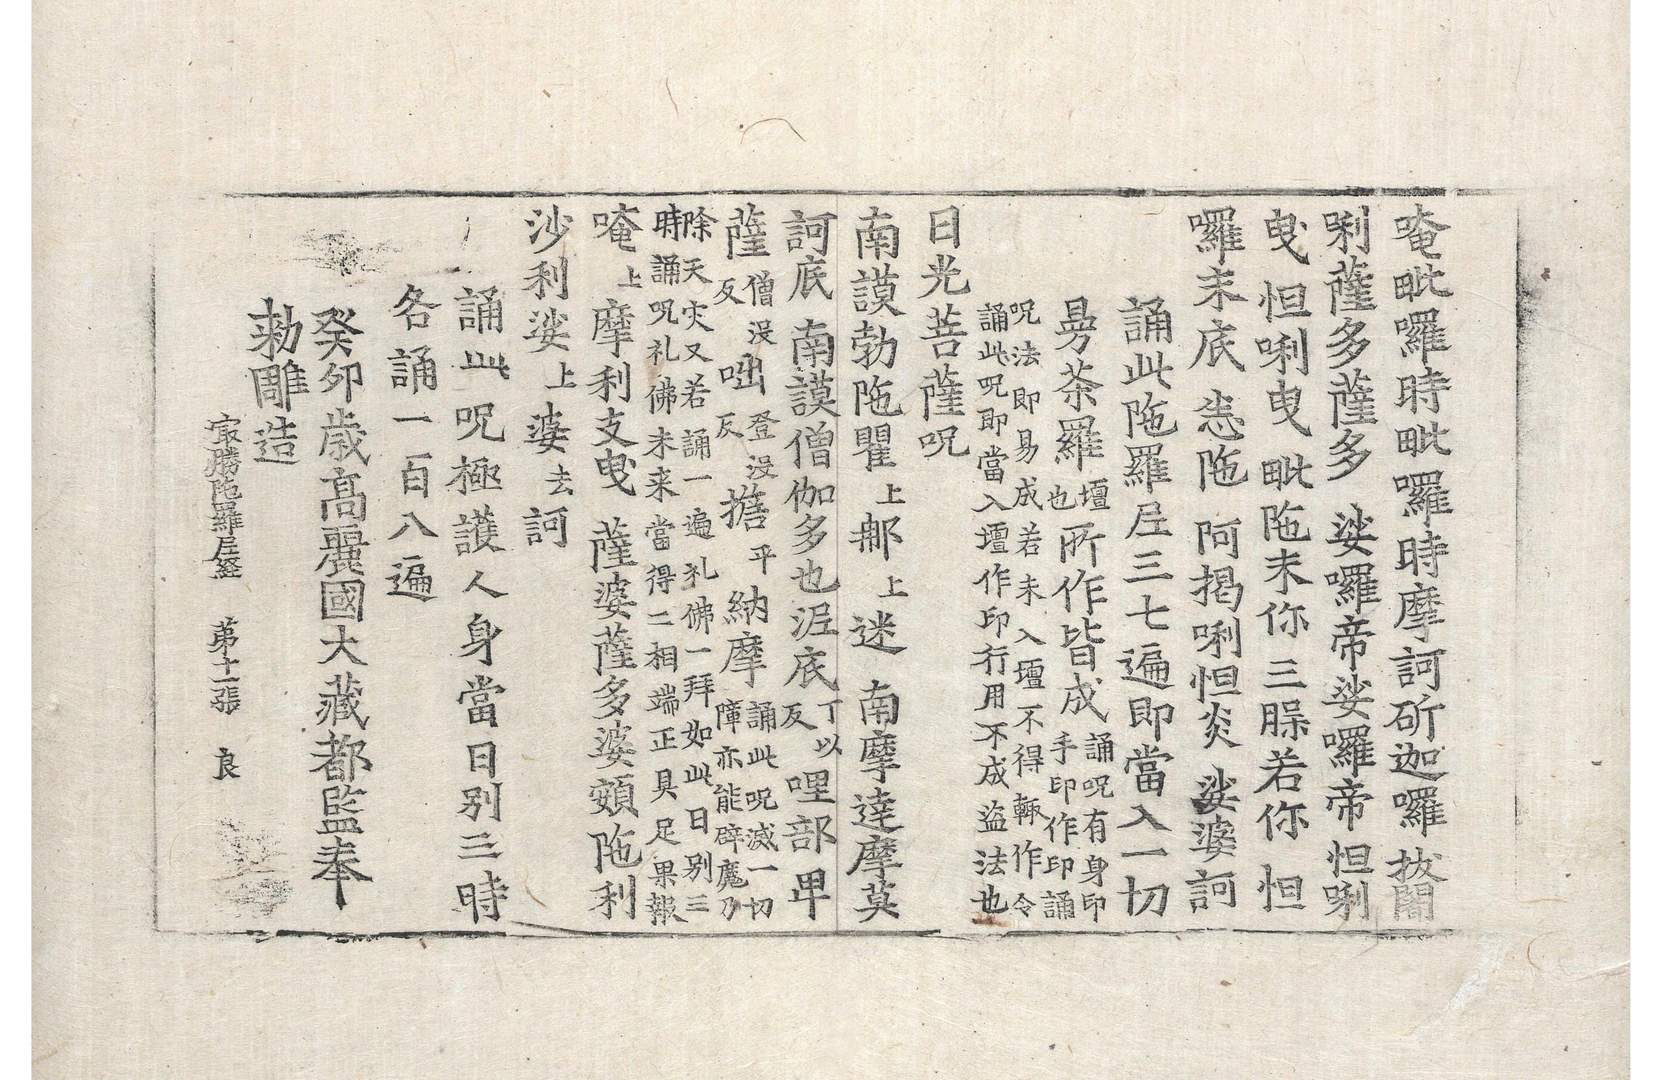 唵毗囉時毗囉時摩訶斫迦囉 拔闍
唎薩多薩多 娑囉帝娑囉帝怛唎
曳怛唎曳毗陁末你三𦜁若你 怛
囉末底 恙陁 阿揭唎怛炎 娑婆訶
誦此陁羅尼三七遍即當入一切
曼荼羅
壇
也
所作皆成
誦呪有身印
手印作印誦
呪法即易成若未入壇不得輙作令
誦此呪即當入壇作印行用不成盗法也
日光菩薩呪
南謨勃陁瞿上那上迷 南摩達摩莫
訶底 南謨僧伽多也泥底
丁以
反
哩部 毘
薩
僧没
反
咄
登没
反
擔平納摩
誦此呪滅一切
障亦能辟魔乃
除天灾又若誦一遍礼佛一拜如此日别三
時誦呪礼佛未来當得二相端正具足果報
唵上摩利支曳 薩婆薩多婆頞陁利
沙利娑上婆去訶
誦此呪極護人身當日别三時
各誦一百八遍
癸卯歳高麗國大藏都監奉
勅雕造
寂勝陁羅尼経 苐十一張 良